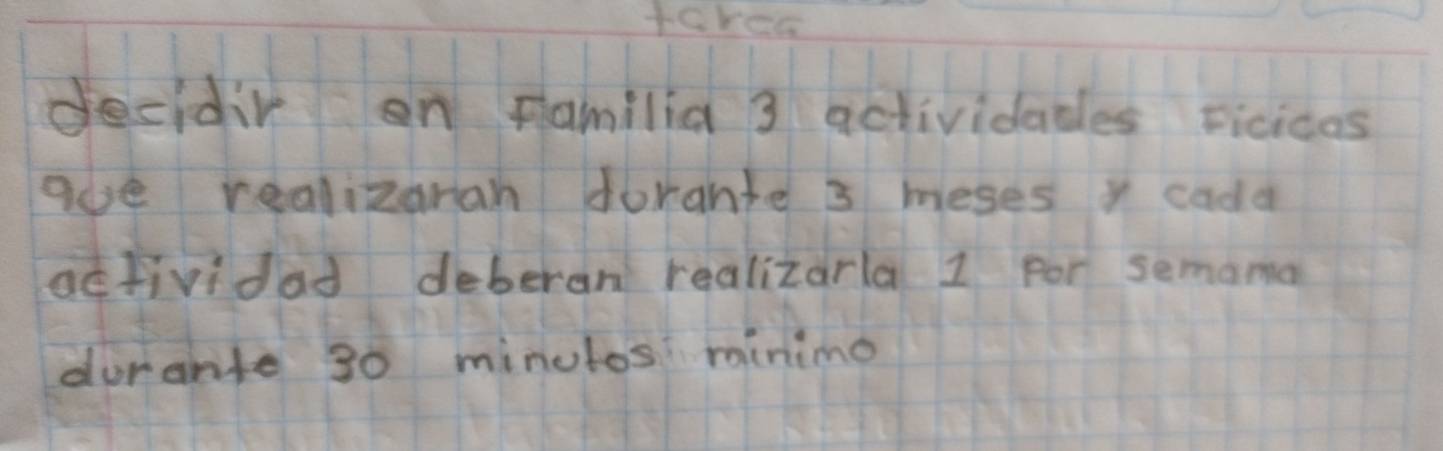 tarea
decidir en Familia 3 actividades Ficicas
que realizaran durante 3 meses y cada
actividad deberan realizarla 1 por semama
durante 30 minutos minimo